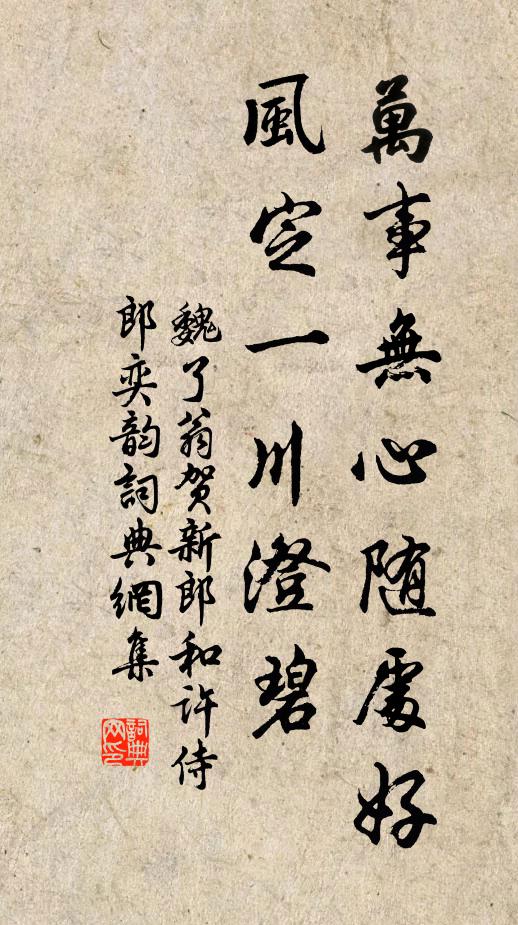 萬事無心随處好
風定一川澄碧
魏了翁贺新郎和許侍
郎奕韵詞典網集
詞典
网印